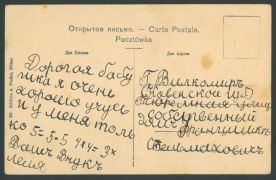 Открытое письмо. — Carte Postale.
Pocztówka
Для Письма.
Для Адреса.
Дорогая бабу
шка я очень
хорошо учусь
и у меня толь
ко 5=5=5 4=4= 3=
Вашъ Внукъ
Леля
Г. Вилкомиръ
Ковенской губ
Тюремная улица
собственный
домъ
Францишкѣ
Стельмаховичъ